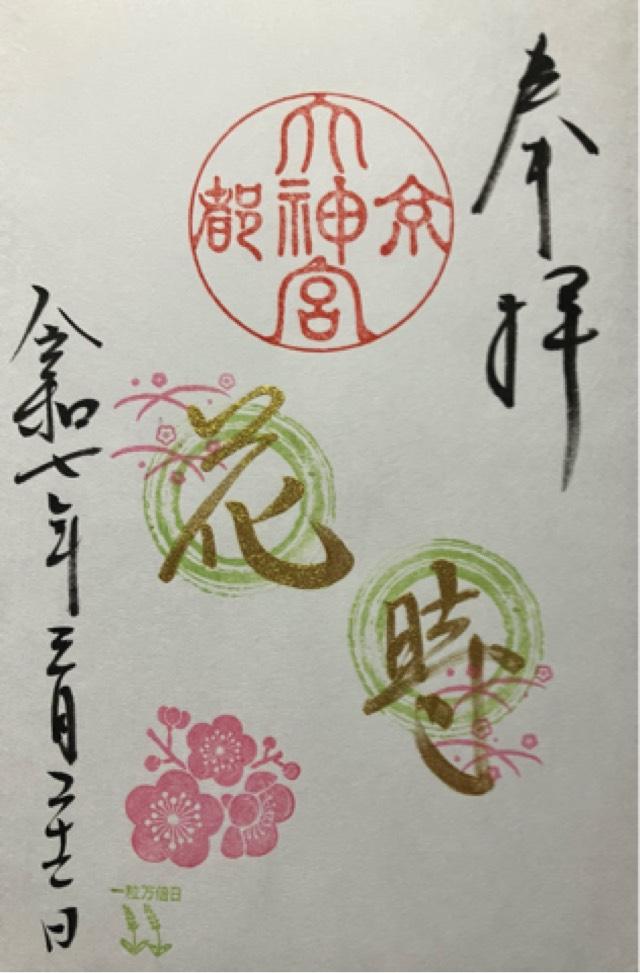 奉拝
京都
大神宮
花
時
令和七年三月二十二日
一粒万倍日